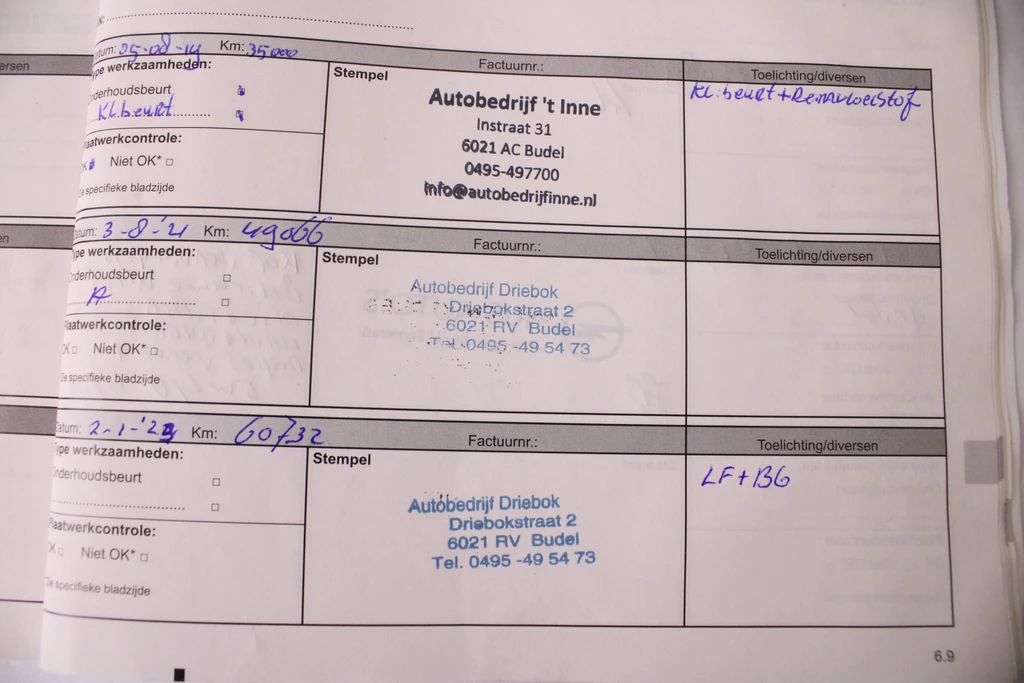 N:
Datum: 25-08-14 Km: 35000 Factuurnr.: Toelichting/diversen
Type werkzaamheden:
Stempel
Onderhoudsbeurt
KL.beurt
Kl.beurt+Remvloeistof
Autobedrijf 't Inne
Instraat 31
6021 AC Budel
0495-497700
info@autobedrijfinne.nl
Plaatwerkcontrole:
OK Niet OK*
De specifieke bladzijde
ersen
Datum: 3-8-'21 Km: 49066 Factuurnr.: Toelichting/diversen
Type werkzaamheden:
Stempel
Onderhoudsbeurt
A
Autobedrijf Driebok
Driebokstraat 2
6021 RV Budel
Tel. 0495 -49 54 73
Plaatwerkcontrole:
OK Niet OK*
De specifieke bladzijde
en
Datum: 2-1-'23 Km: 60732 Factuurnr.: Toelichting/diversen
Type werkzaamheden:
Stempel
Onderhoudsbeurt
LF+BG
Autobedrijf Driebok
Driebokstraat 2
6021 RV Budel
Tel. 0495 -49 54 73
Plaatwerkcontrole:
OK Niet OK*
De specifieke bladzijde
6.9